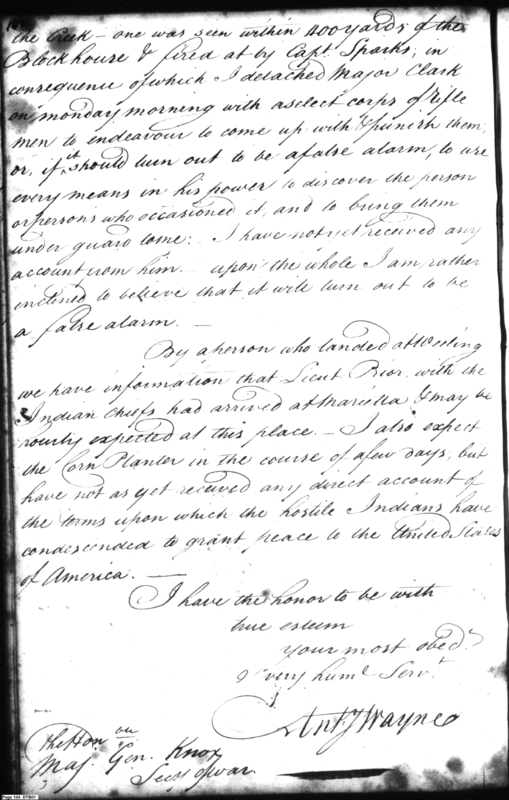 the Creek – one was seen within 400 yards of the
Block house & fired at by Capt. Sparks; in
consequence of which I detached Major Clark
on monday morning with a select corps of rifle
men to endeavour to come up with & punish them;
or, if it should turn out to be a false alarm, to use
every means in his power to discover the person
or persons who occasioned it, and to bring them
under guard to me: – I have not yet received any
account from him. – upon the whole I am rather
inclined to believe that it will turn out to be
a false alarm. –
By a person who landed at Weeling
we have information that Lieut Prior with the
Indian Chiefs had arrived at Marietta & may be
hourly expected at this place. – I also expect
the Corn Planter in the course of a few days, but
have not as yet received any direct account of
the terms upon which the hostile Indians have
condescended to grant peace to the United States
of America. –
I have the honor to be with
true esteem
your most obedt
& very humle Servt
Anty Wayne
The Honble
Maj. Gen. Knox
Secty of war
Page 144